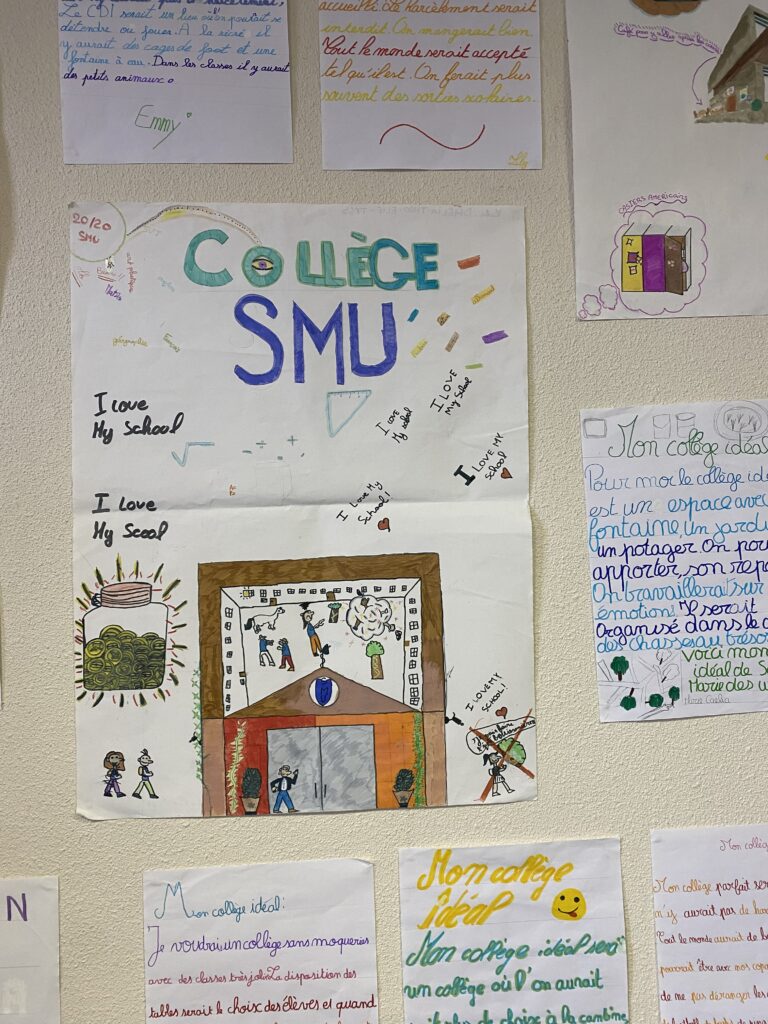 Le CDI serait un lieu où on pourrait se
détendre ou jouer. À la récré il
y aurait des cages de foot et une
fontaine à eau. Dans les classes il y aurait
des petits animaux.
Emmy
accueilli. Le harcèlement serait
interdit. On mangerait bien.
Tout le monde serait accepté
tel qu'il est. On ferait plus
souvent des sorties scolaires.
Lily
CASIERS AMERICAINS
20/20
SMU
COLLÈGE
SMU
art plastique
géographie
Français
I Love
My School
I Love
My School
I LOVE
My School
I LOVE MY
School
I Love My
School!
I Love
My Scool
I LOVE MY
SCHOOL!
Mon collège idéal
Pour moi le collège idé
est un espace avec
fontaine, un jardi
un potager. On pou
apporter, son repa
On travaillerait sur
émotion! Il serait
organisé dans le c
des chasses au trésor
voici mon
idéal de Se
Marie des u
N
Mon collège idéal:
Je voudrai un collège sans moqueries
avec des classes très jolin. La disposition des
tables serait le choix des élèves et quand
Mon collège
idéal
Mon collège idéal sera
un collège où l'on aurait
de choix à la cantine
Mon collèg
Mon collège parfait ser
n'y aurait pas de har
Tout le monde aurait de b
pourrait être avec nos copa
de me pas déranger les